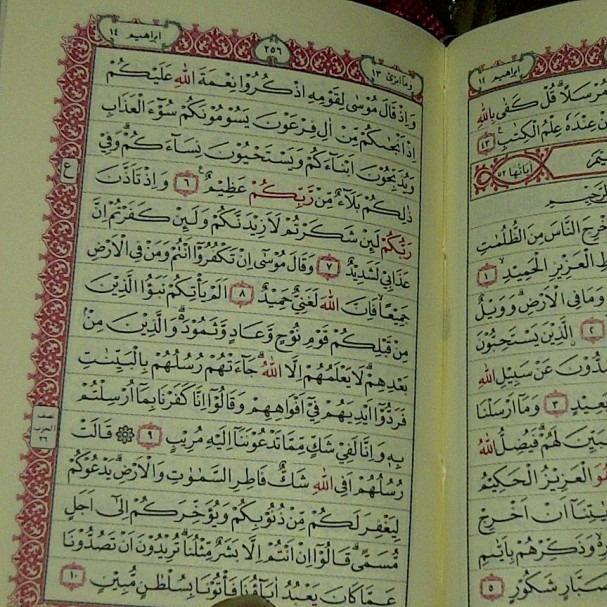 ابراهيم ١٤
٢٥٦
وما ابرئ ١٣
وَاِذْ قَالَ مُوسٰى لِقَوْمِهِ اذْكُرُوْا نِعْمَةَ اللهِ عَلَيْكُمْ
اِذْ اَنْجٰىكُمْ مِّنْ اٰلِ فِرْعَوْنَ يَسُوْمُوْنَكُمْ سُوْٓءَ الْعَذَابِ
وَيُذَبِّحُوْنَ اَبْنَآءَكُمْ وَيَسْتَحْيُوْنَ نِسَآءَكُمْ ۗ وَفِيْ
ذٰلِكُمْ بَلَآءٌ مِّنْ رَّبِّكُمْ عَظِيْمٌ ٦ وَاِذْ تَاَذَّنَ
رَبُّكُمْ لَىِٕنْ شَكَرْتُمْ لَاَزِيْدَنَّكُمْ وَلَىِٕنْ كَفَرْتُمْ اِنَّ
عَذَابِيْ لَشَدِيْدٌ ٧ وَقَالَ مُوْسٰٓى اِنْ تَكْفُرُوْٓا اَنْتُمْ وَمَنْ فِى الْاَرْضِ
جَمِيْعًا ۙ فَاِنَّ اللهَ لَغَنِيٌّ حَمِيْدٌ ٨ اَلَمْ يَأْتِكُمْ نَبَؤُا الَّذِيْنَ
مِنْ قَبْلِكُمْ قَوْمِ نُوْحٍ وَّعَادٍ وَّثَمُوْدَ ۛ وَالَّذِيْنَ مِنْۢ
بَعْدِهِمْ ۛ لَا يَعْلَمُهُمْ اِلَّا اللهُ ۗ جَآءَتْهُمْ رُسُلُهُمْ بِالْبَيِّنٰتِ
فَرَدُّوْٓا اَيْدِيَهُمْ فِيْٓ اَفْوَاهِهِمْ وَقَالُوْٓا اِنَّا كَفَرْنَا بِمَآ اُرْسِلْتُمْ
بِهٖ وَاِنَّا لَفِيْ شَكٍّ مِّمَّا تَدْعُوْنَنَآ اِلَيْهِ مُرِيْبٍ ٩ ۞ قَالَتْ
رُسُلُهُمْ اَفِى اللهِ شَكٌّ فَاطِرِ السَّمٰوٰتِ وَالْاَرْضِ ۗ يَدْعُوْكُمْ
لِيَغْفِرَ لَكُمْ مِّنْ ذُنُوْبِكُمْ وَيُؤَخِّرَكُمْ اِلٰٓى اَجَلٍ
مُّسَمًّى ۗ قَالُوْٓا اِنْ اَنْتُمْ اِلَّا بَشَرٌ مِّثْلُنَا ۗ تُرِيْدُوْنَ اَنْ تَصُدُّوْنَا
عَمَّا كَانَ يَعْبُدُ اٰبَآؤُنَا فَأْتُوْنَا بِسُلْطٰنٍ مُّبِيْنٍ ١٠
ع
نصف
الحزب
٢٦
ابراهيم ١٤
قُلْ كَفٰى بِاللهِ
عِنْدَهٗ عِلْمُ الْكِتٰبِ ٤٣
اٰيَاتُهَا ٥٢
النَّاسَ مِنَ الظُّلُمٰتِ
الْعَزِيْزِ الْحَمِيْدِ ١
وَمَا فِى الْاَرْضِ ۗ وَوَيْلٌ
٢ الَّذِيْنَ يَسْتَحِبُّوْنَ
عَنْ سَبِيْلِ اللهِ
٣ وَمَآ اَرْسَلْنَا
لَهُمْ ۗ فَيُضِلُّ اللهُ
الْعَزِيْزُ الْحَكِيْمُ
اَنْ اَخْرِجْ
وَذَكِّرْهُمْ بِاَيّٰىمِ
صَبَّارٍ شَكُوْرٍ ٥